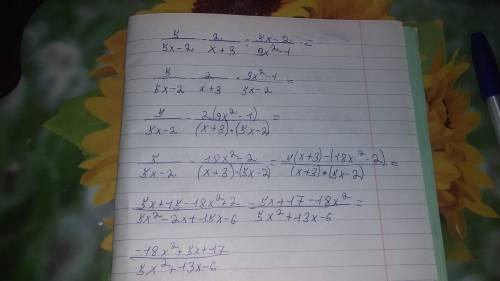 5/(5x-2) - 2/(x+3) : (5x-2)/(9x²-1) =
5/(5x-2) - 2/(x+3) · (9x²-1)/(5x-2) =
5/(5x-2) - 2(9x²-1)/((x+3)·(5x-2)) =
5/(5x-2) - (18x²-2)/((x+3)·(5x-2)) = (5(x+3)-(18x²-2))/((x+3)·(5x-2)) =
(5x+15-18x²+2)/(5x²-2x+15x-6) = (5x+17-18x²)/(5x²+13x-6) =
(-18x²+5x+17)/(5x²+13x-6)